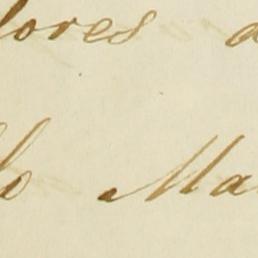 lores a
lo Ma